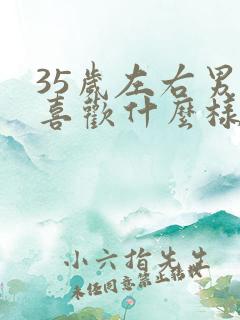 35歲左右男
喜歡什麼樣
小六指先生
未經同意禁止轉載